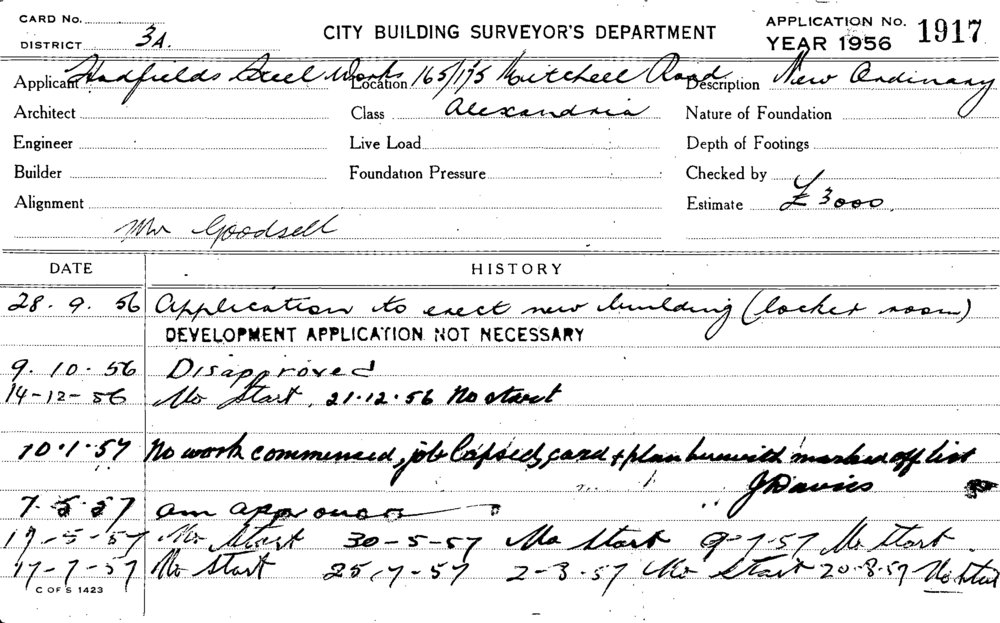 CARD No.
DISTRICT 3A.
CITY BUILDING SURVEYOR'S DEPARTMENT
APPLICATION No. 1917
YEAR 1956
Applicant Hadfields Steel Works Location 165/175 Mitchell Road Description New Ordinary
Architect Class Alexandria Nature of Foundation
Engineer Live Load Depth of Footings
Builder Foundation Pressure Checked by
Alignment Estimate £3000.
Mr Goodsell
DATE HISTORY
28.9.56 Application to erect new building (locker room)
DEVELOPMENT APPLICATION NOT NECESSARY
9.10.56 Disapproved
14-12-56 No Start, 21.12.56 No start
10.1.57 No work commenced, job lapsed, card & plan herewith marked off list
J Davies
7.5.57 am approved
17-5-57 No Start 30-5-57 No Start 9-7-57 No Start.
17-7-57 No Start 25.7-57 2-8.57 No Start 20.8.57 No Start
C OF S 1423